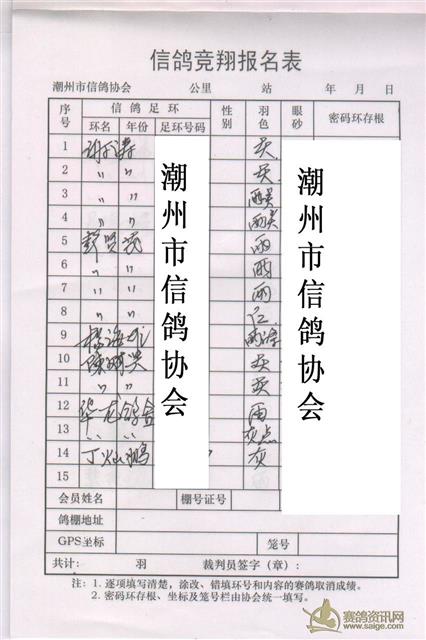 信鸽竞翔报名表
潮州市信鸽协会 公里 站 年 月 日
序号 信鸽足环 性别 羽色 眼砂 密码环存根
环名 年份 足环号码
1 灰
2 〃 〃 灰
3 〃 〃
4 〃 〃
5 雨
6 〃 〃 雨
7 〃 〃 雨
8 〃 〃
9
10 灰
11 〃 〃 灰
12 华龙鸽舍 雨
13 〃 〃 灰点
14 丁灿鹏 灰
15
潮州市信鸽协会
潮州市信鸽协会
会员姓名 棚号证号
鸽棚地址
GPS坐标 笼号
共计： 羽 裁判员签字（章）：
注：1. 逐项填写清楚，涂改、错填环号和内容的赛鸽取消成绩。
2. 密码环存根、坐标及笼号栏由协会统一填写。
赛鸽资讯网
www.saige.com